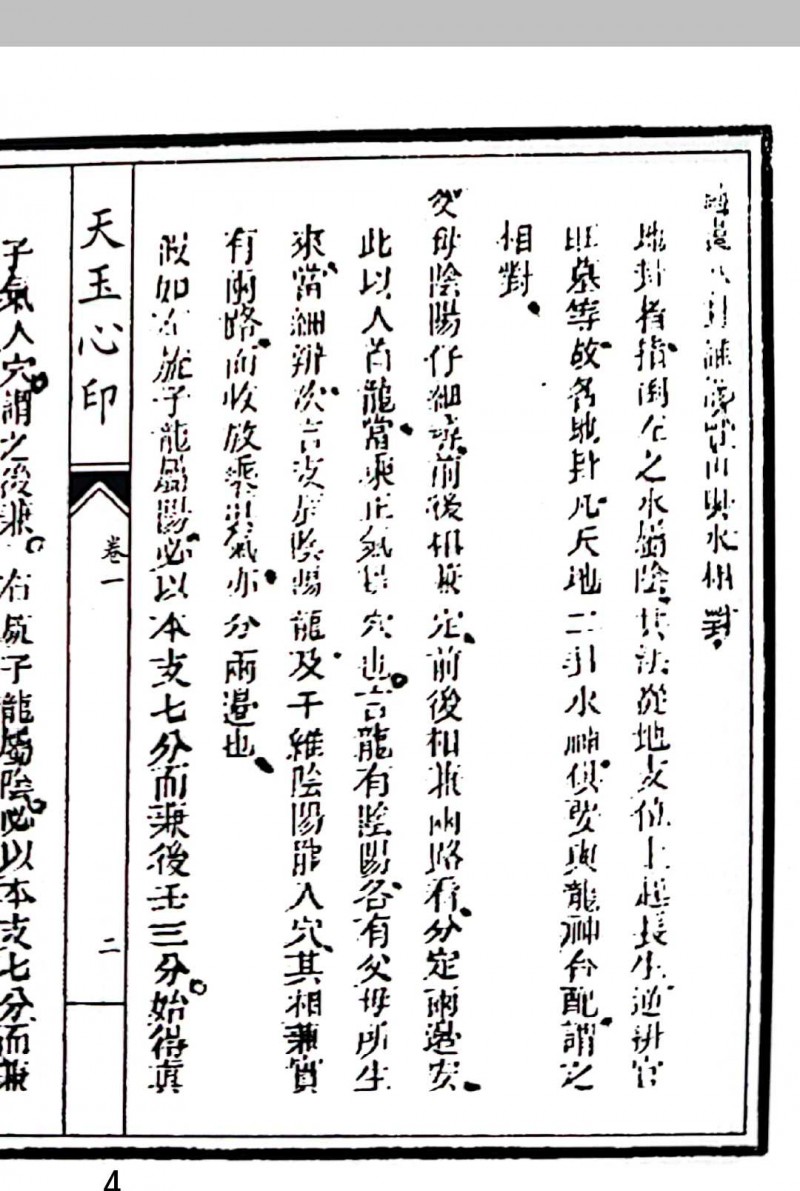 山與水相對
地卦者指倒左之水屬陰其法從地支位上起長生逆排官
旺墓等故名地卦凡天地二卦水神俱要與龍神合配謂之
相對
父母陰陽仔細尋前後相兼定前後相兼兩路看分定兩邊安
此以人首龍當乘正氣扦穴也言龍有陰陽各有父母所生
來當細辨次言支屬陰陽龍及干維陰陽龍入穴其相兼實
有兩路而收放乘氣亦分兩邊也
假如左旋子龍屬陽必以本支七分而兼後壬三分始得真
天玉心印
卷一
二
子氣入穴謂之後兼右旋子龍屬陰必以本支七分而兼
4